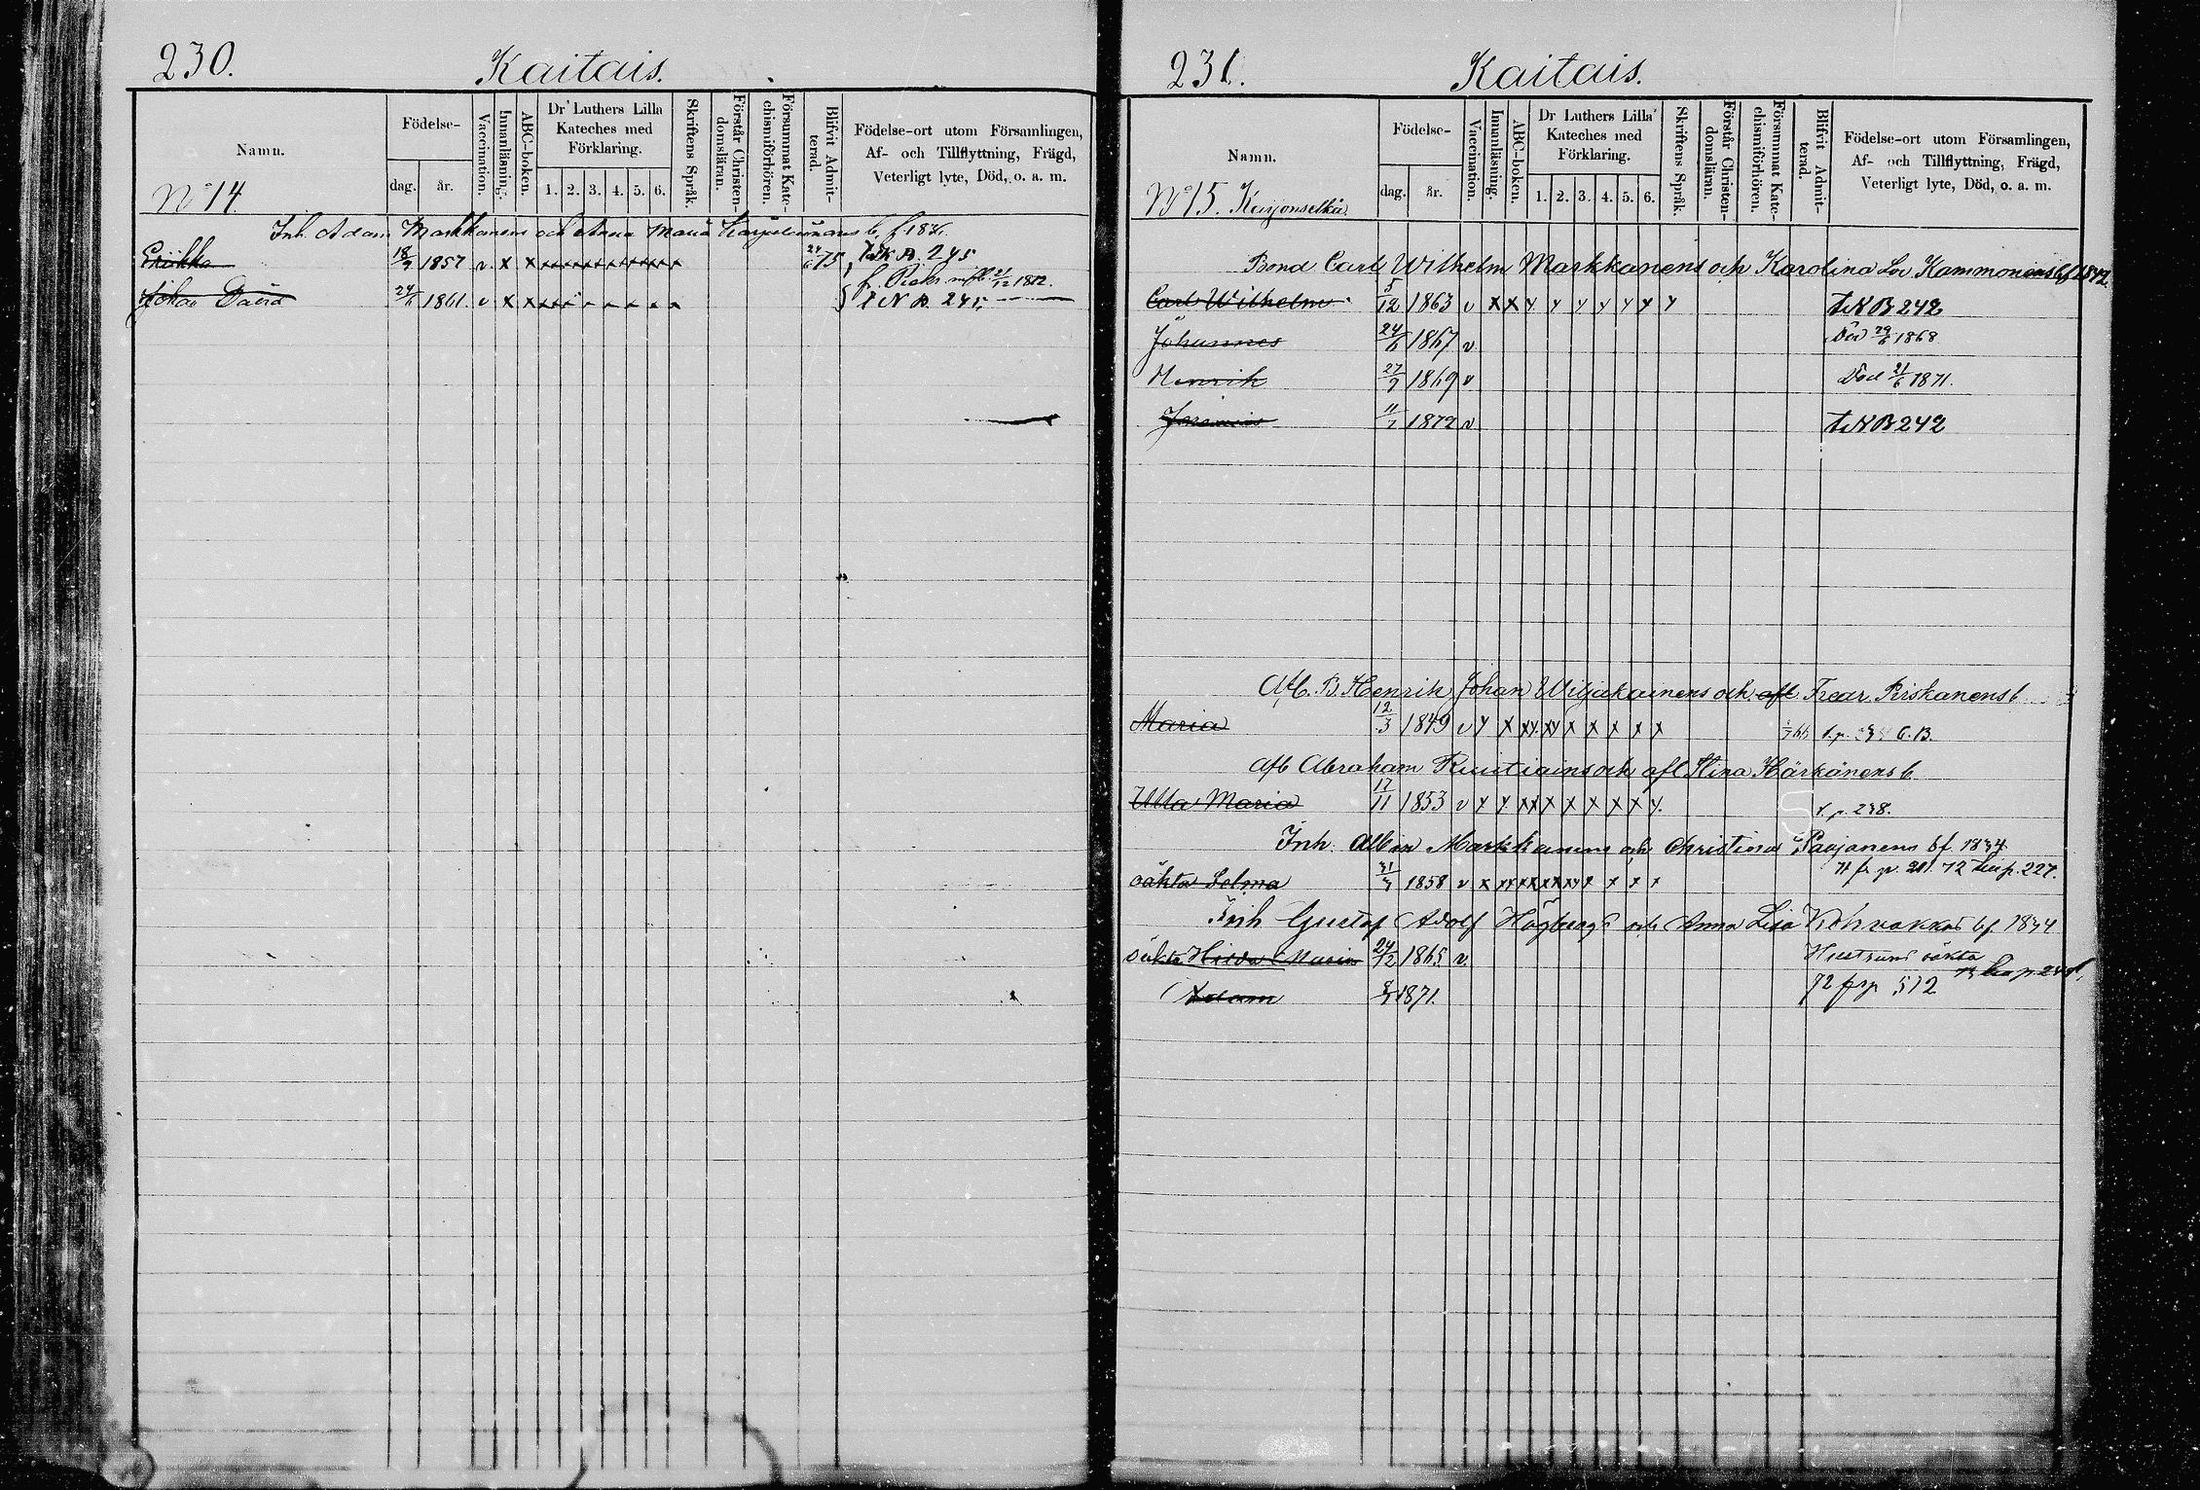 230.
Kaitais.
Namn.
Födelse-
dag.
år.
Vaccination.
Innanläsning.
ABC-boken.
Dr Luthers Lilla
Kateches med
Förklaring.
1. 2. 3. 4. 5. 6.
Skriftens Språk.
Förstår Christen-
domsläran.
Försummat Kate-
chismiförhören.
Blifvit Admit-
terad.
Födelse-ort utom Församlingen,
Af- och Tillflyttning, Frägd,
Veterligt lyte, Död, o. a. m.
No 14.
Inh. Adam Markkanens och Anna Maria b. f 1831.
Erikka 18/9 1857 v x x x x x x x x x x x x 24/6 75 N. B. 245
fr. 21/12 1872.
Johan David 24/6 1861. v x x x x x N B. 245
231.
Kaitais.
Namn.
Födelse-
dag.
år.
Vaccination.
Innanläsning.
ABC-boken.
Dr Luthers Lilla
Kateches med
Förklaring.
1. 2. 3. 4. 5. 6.
Skriftens Språk.
Förstår Christen-
domsläran.
Försummat Kate-
chismiförhören.
Blifvit Admit-
terad.
Födelse-ort utom Församlingen,
Af- och Tillflyttning, Frägd,
Veterligt lyte, Död, o. a. m.
No 15. Karjonselkä.
Bond Carl Wilhelm Markkanens och Karolina Lov. Kammonens b f 1842.
Carl Wilhelm 5/12 1863 v x x y y y y y y y t. N B 242
Johannes 24/6 1867 v Död 29/6 1868
Henrik 27/9 1869 v Död 21/6 1871.
1872 v t. N B 242
Afl. B. Henrik Johan Wiljakainens och afl. Fredr. Piiskanens b
Maria 12/3 1849 v y x xy xy x x x x x B.
Afl Abraham Ruutiains och afl Stina Härkönens b
Ulla Maria 17/11 1853 v x x xx x x x x x y. t. p. 238.
Inh. Albin Markkanens och Christina Paajanens bf. 1834
oäkta Selma 1858 v x xx xx xx xy x x x x fr p. 72 p. 227.
Inh Gustaf Adolf Högbergs och Anna Lisa bf 1834
oäkta Hilda Maria 24/12 1865 v. Hustruns oäkta
Adam 1871. 72 fr p 512